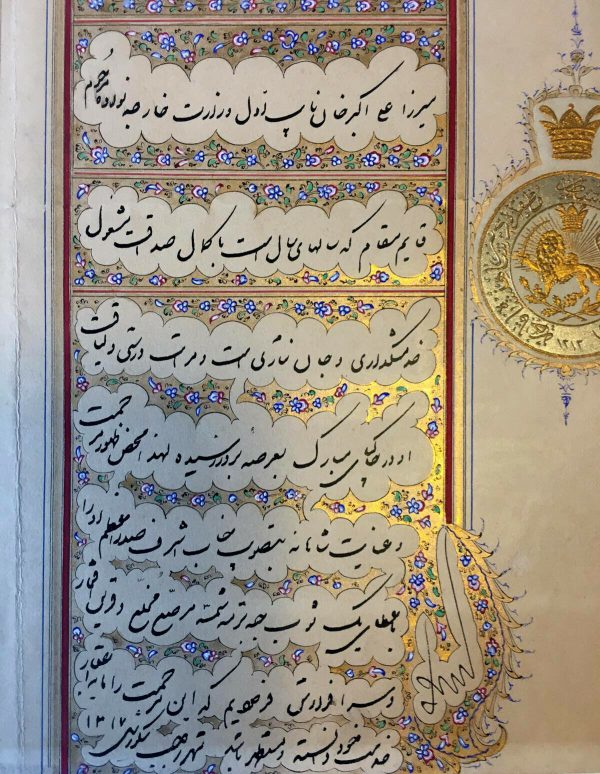 میرزا علی اکبر خان نایب اول وزارت خارجه نواده مرحوم
قایم مقام که سالهای سال است با کمال صداقت مشغول
خدمتگذاری و جان نثاری است و مراتب درستی و لیاقت
او در خاکپای مبارک بعرصه بروز رسیده لهذا محض ظهور مرحمت
و عنایت شاهانه بتصویب جناب اشرف صدر اعظم او را
باعطای یک ثوب جبه ترمه شمسه مرصع مخلع و قرین افتخار
و سرافرازی فرمودیم که این مرحمت را مایه اعتبار
خدمت خود دانسته و مستظهر باشد شهر رجب ۱۳۱۷
۱۳۱۳